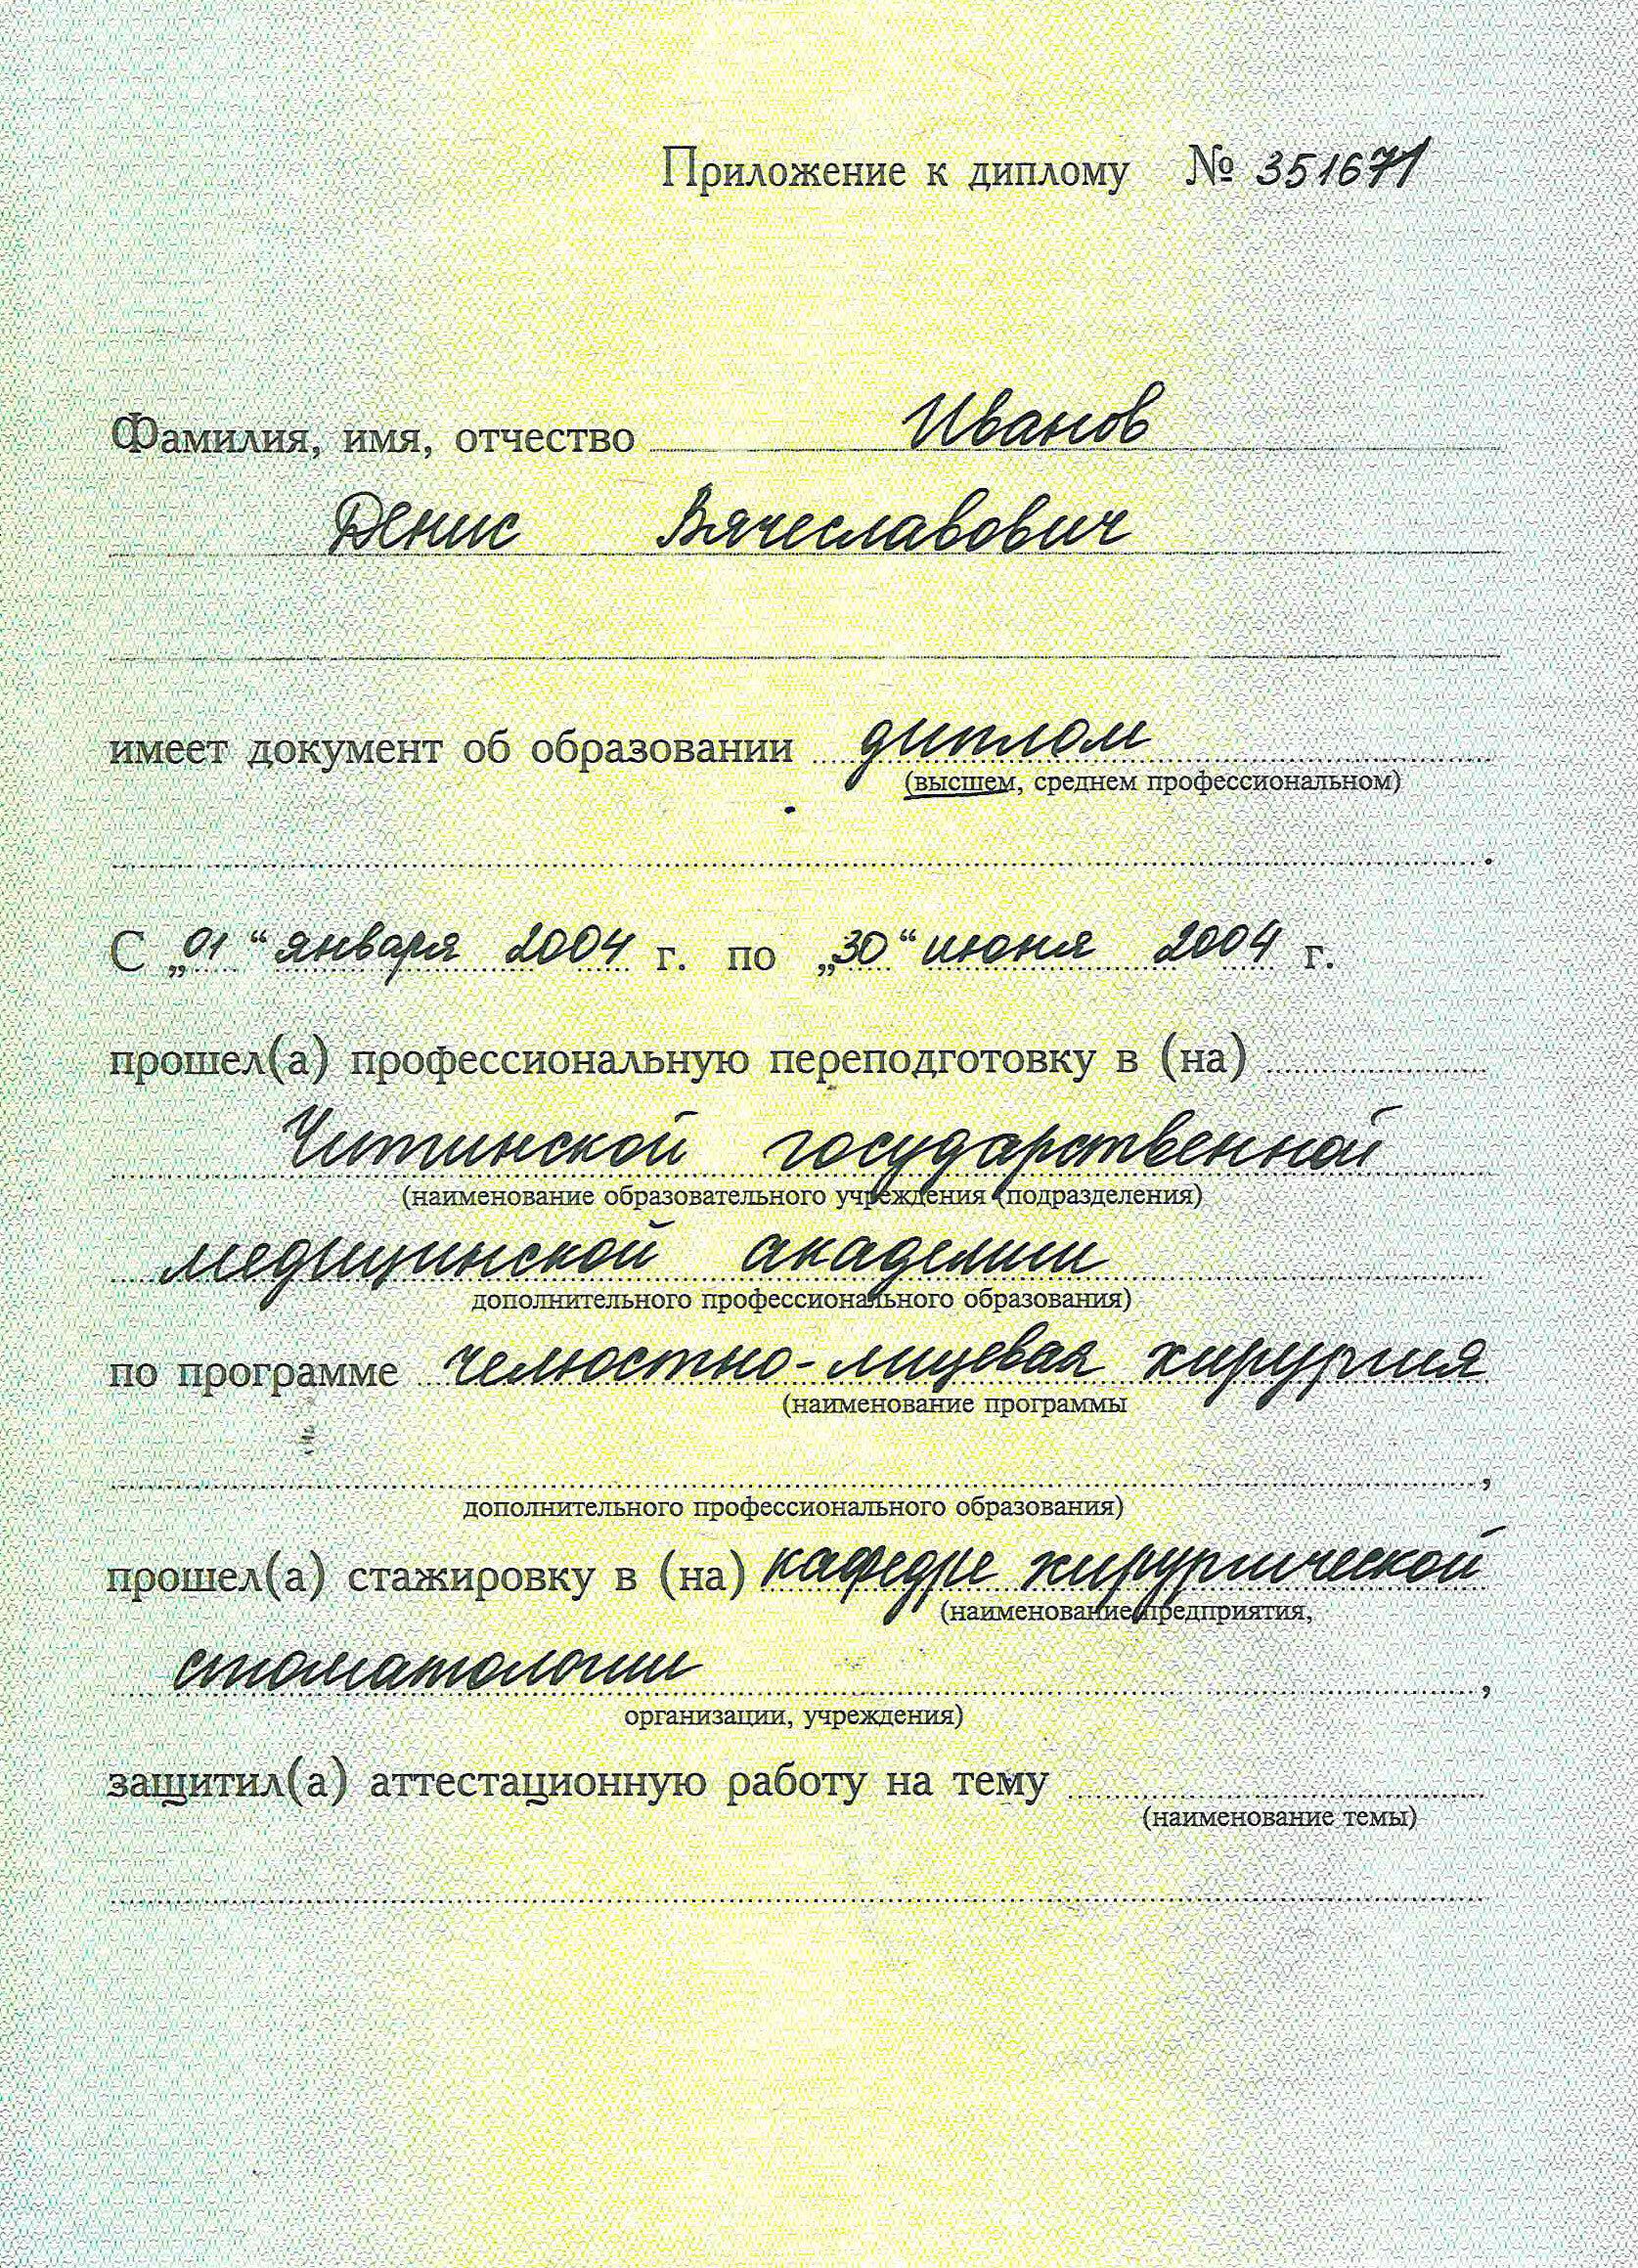 Приложение к диплому № 351671
Фамилия, имя, отчество Иванов
Денис Вячеславович
имеет документ об образовании диплом
(высшем, среднем профессиональном)
С „01“ января 2004 г. по „30“ июня 2004 г.
прошел(а) профессиональную переподготовку в (на)
Читинской государственной
(наименование образовательного учреждения (подразделения)
медицинской академии
дополнительного профессионального образования)
по программе челюстно-лицевая хирургия
(наименование программы
,
дополнительного профессионального образования)
прошел(а) стажировку в (на) кафедре хирургической
(наименование предприятия,
стоматологии ,
организации, учреждения)
защитил(а) аттестационную работу на тему
(наименование темы)